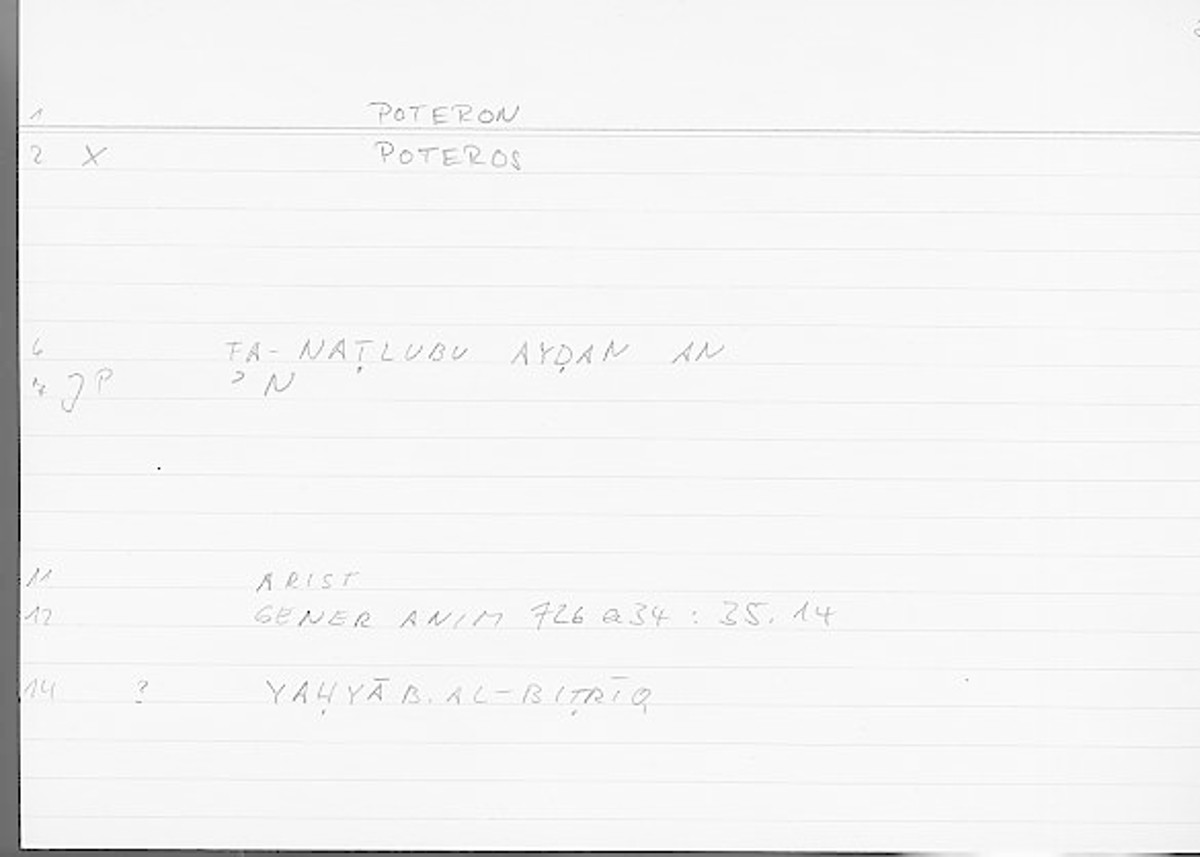 1 POTERON
2 X POTEROS
6 FA- NAṬLUBU AYḌAN AN
7 JP ʾN
11 ARIST
12 GENER ANIM 726 a34 : 35. 14
14 ? YAḤYĀ B. AL-BIṬRĪQ